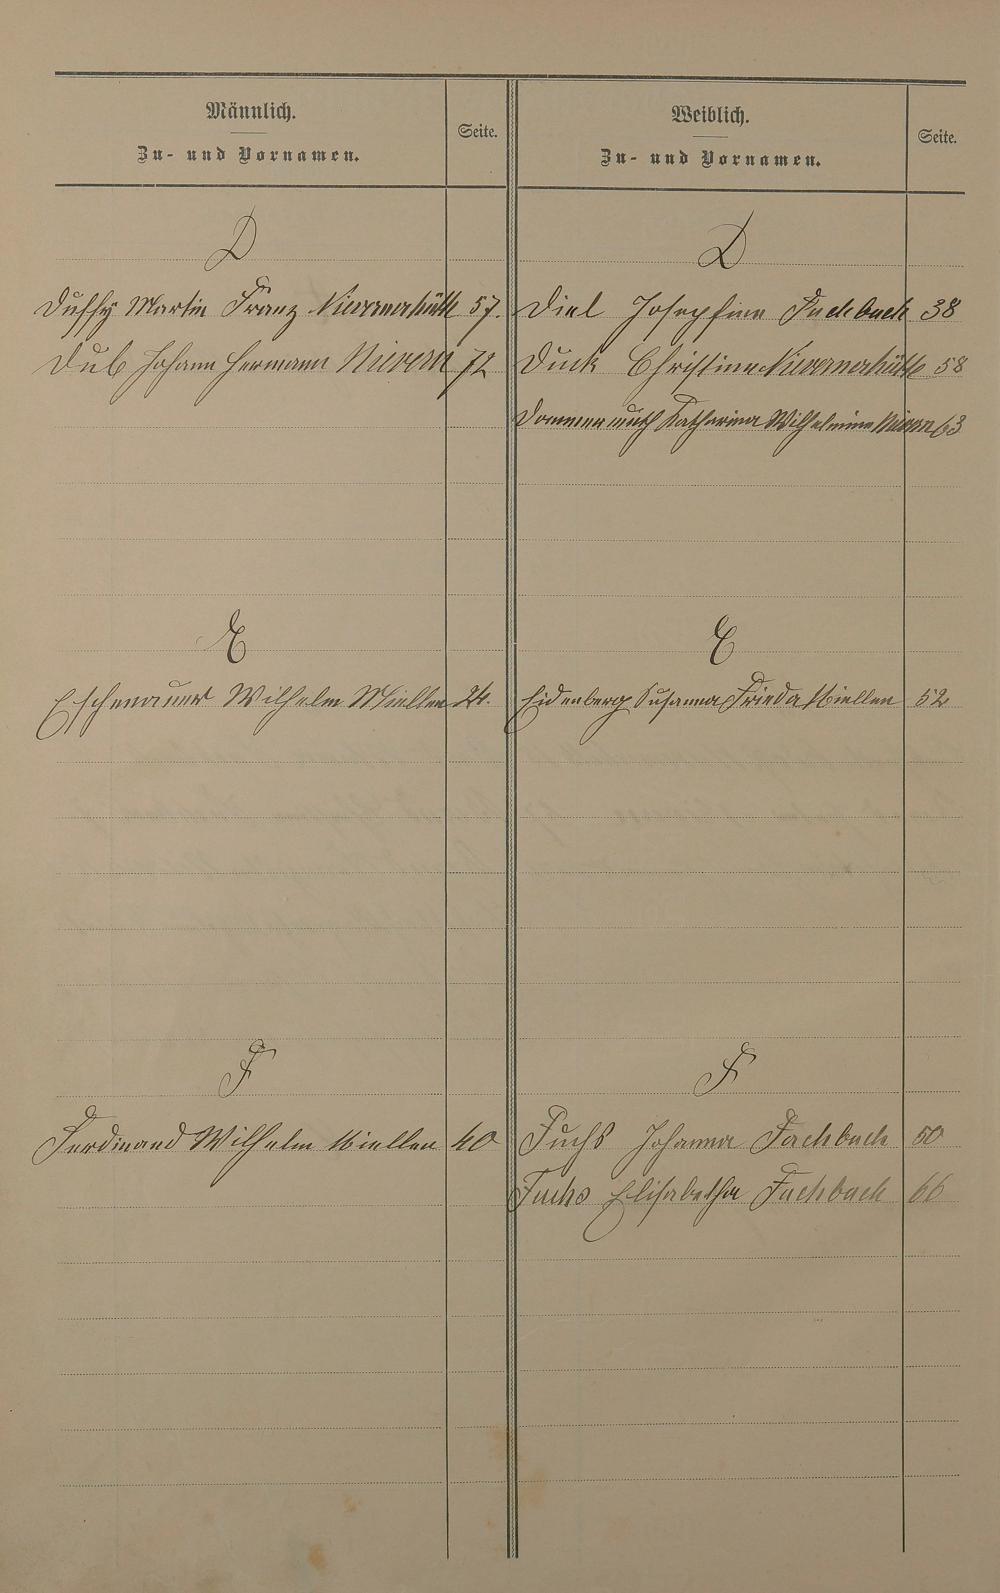 Männlich.
Zu- und Vornamen.
Seite.
D
Duffy Martin Franz Nievernerhütte 57.
Dub Johann Hermann Nievern 72
E
Eschenauer Wilhelm Miellen 24.
F
Ferdinand Wilhelm Miellen 40
Weiblich.
Zu- und Vornamen.
Seite.
D
Diel Josephine Fachbach 38
Duck Christina Nievernerhütte 58
Dommermuth Katharina Wilhelmine Nievern 63
E
Eidenberg Susanna Frieda Miellen 52
F
Fuchs Johanna Fachbach 50
Fuchs Elisabetha Fachbach 66